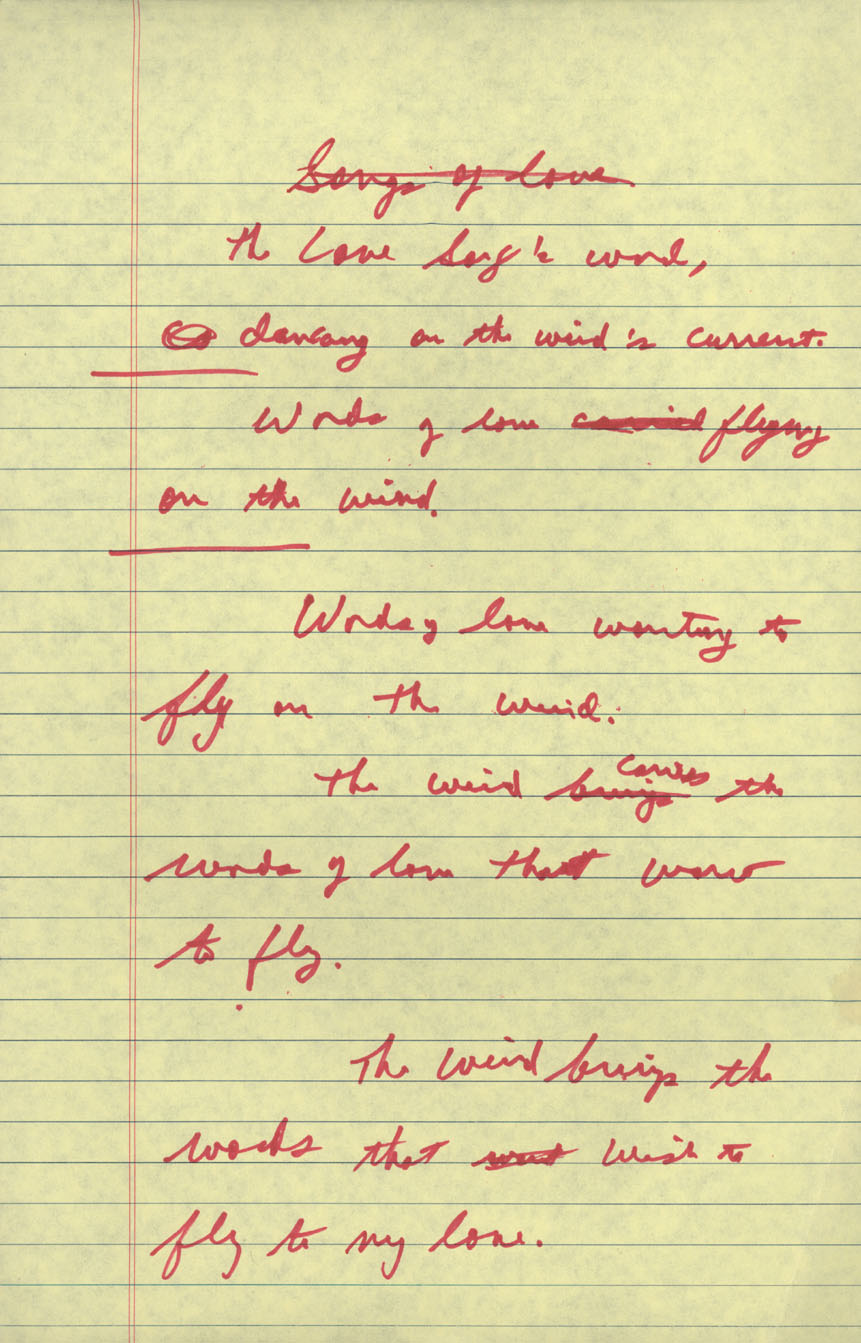 Songs of love
the Love Song's word,
dancing on the wind's current.
Words of love carried flying
on the wind.
Words of love wanting to
fly on the wind.
The wind brings carries the
words of love that want
to fly.
The wind brings the
words that want wish to
fly to my love.